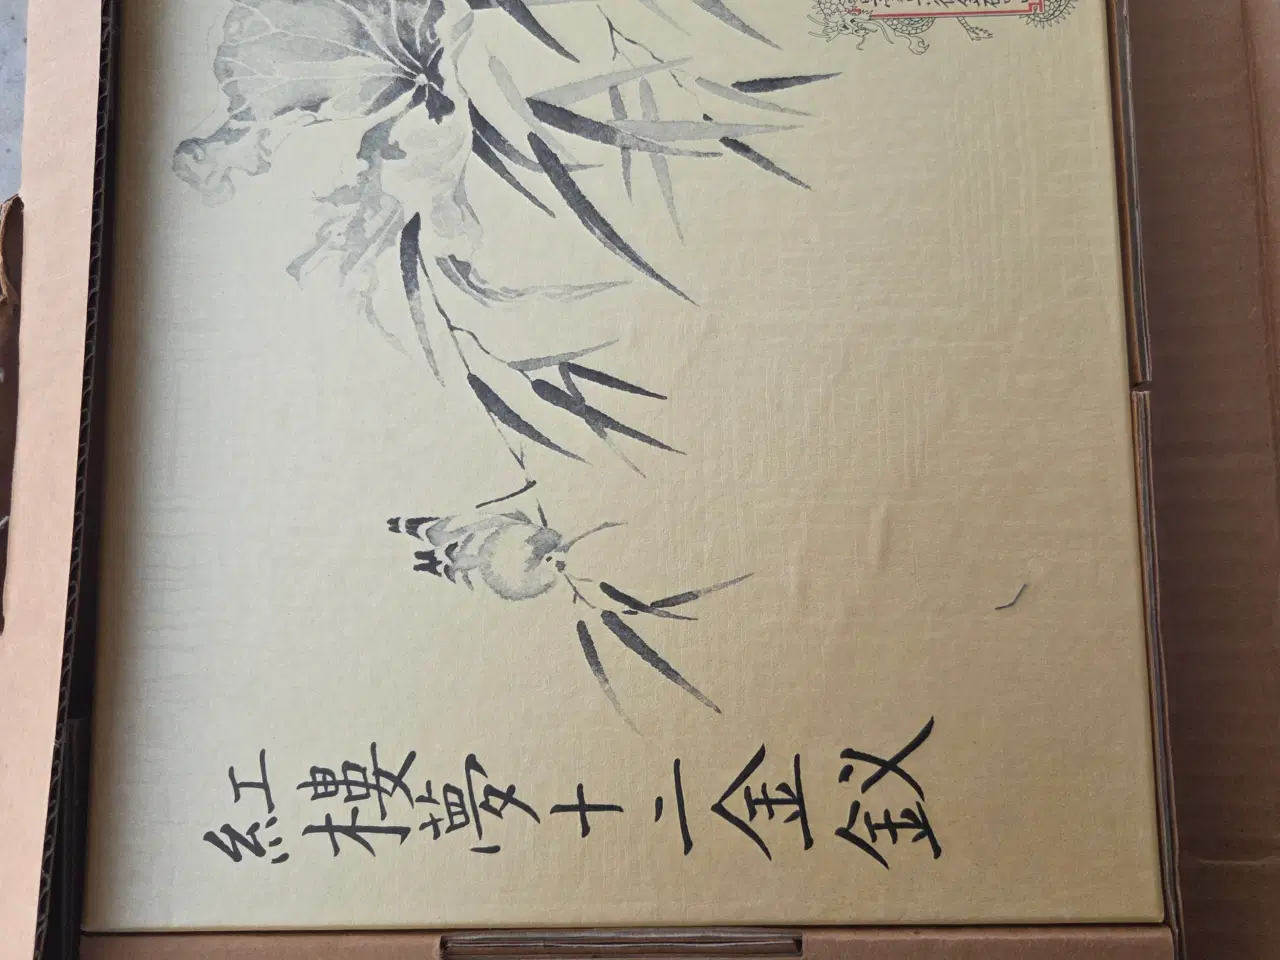 紅樓夢十二金釵